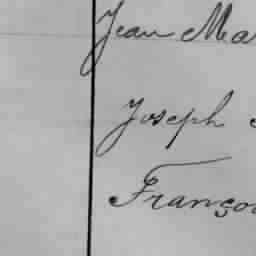 Jean Ma
Joseph
Franço